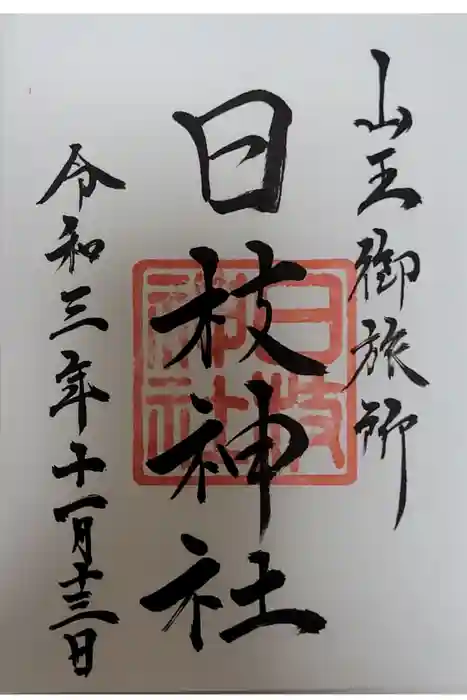 山王御旅所
日枝神社
令和三年十一月十三日
日枝
神社